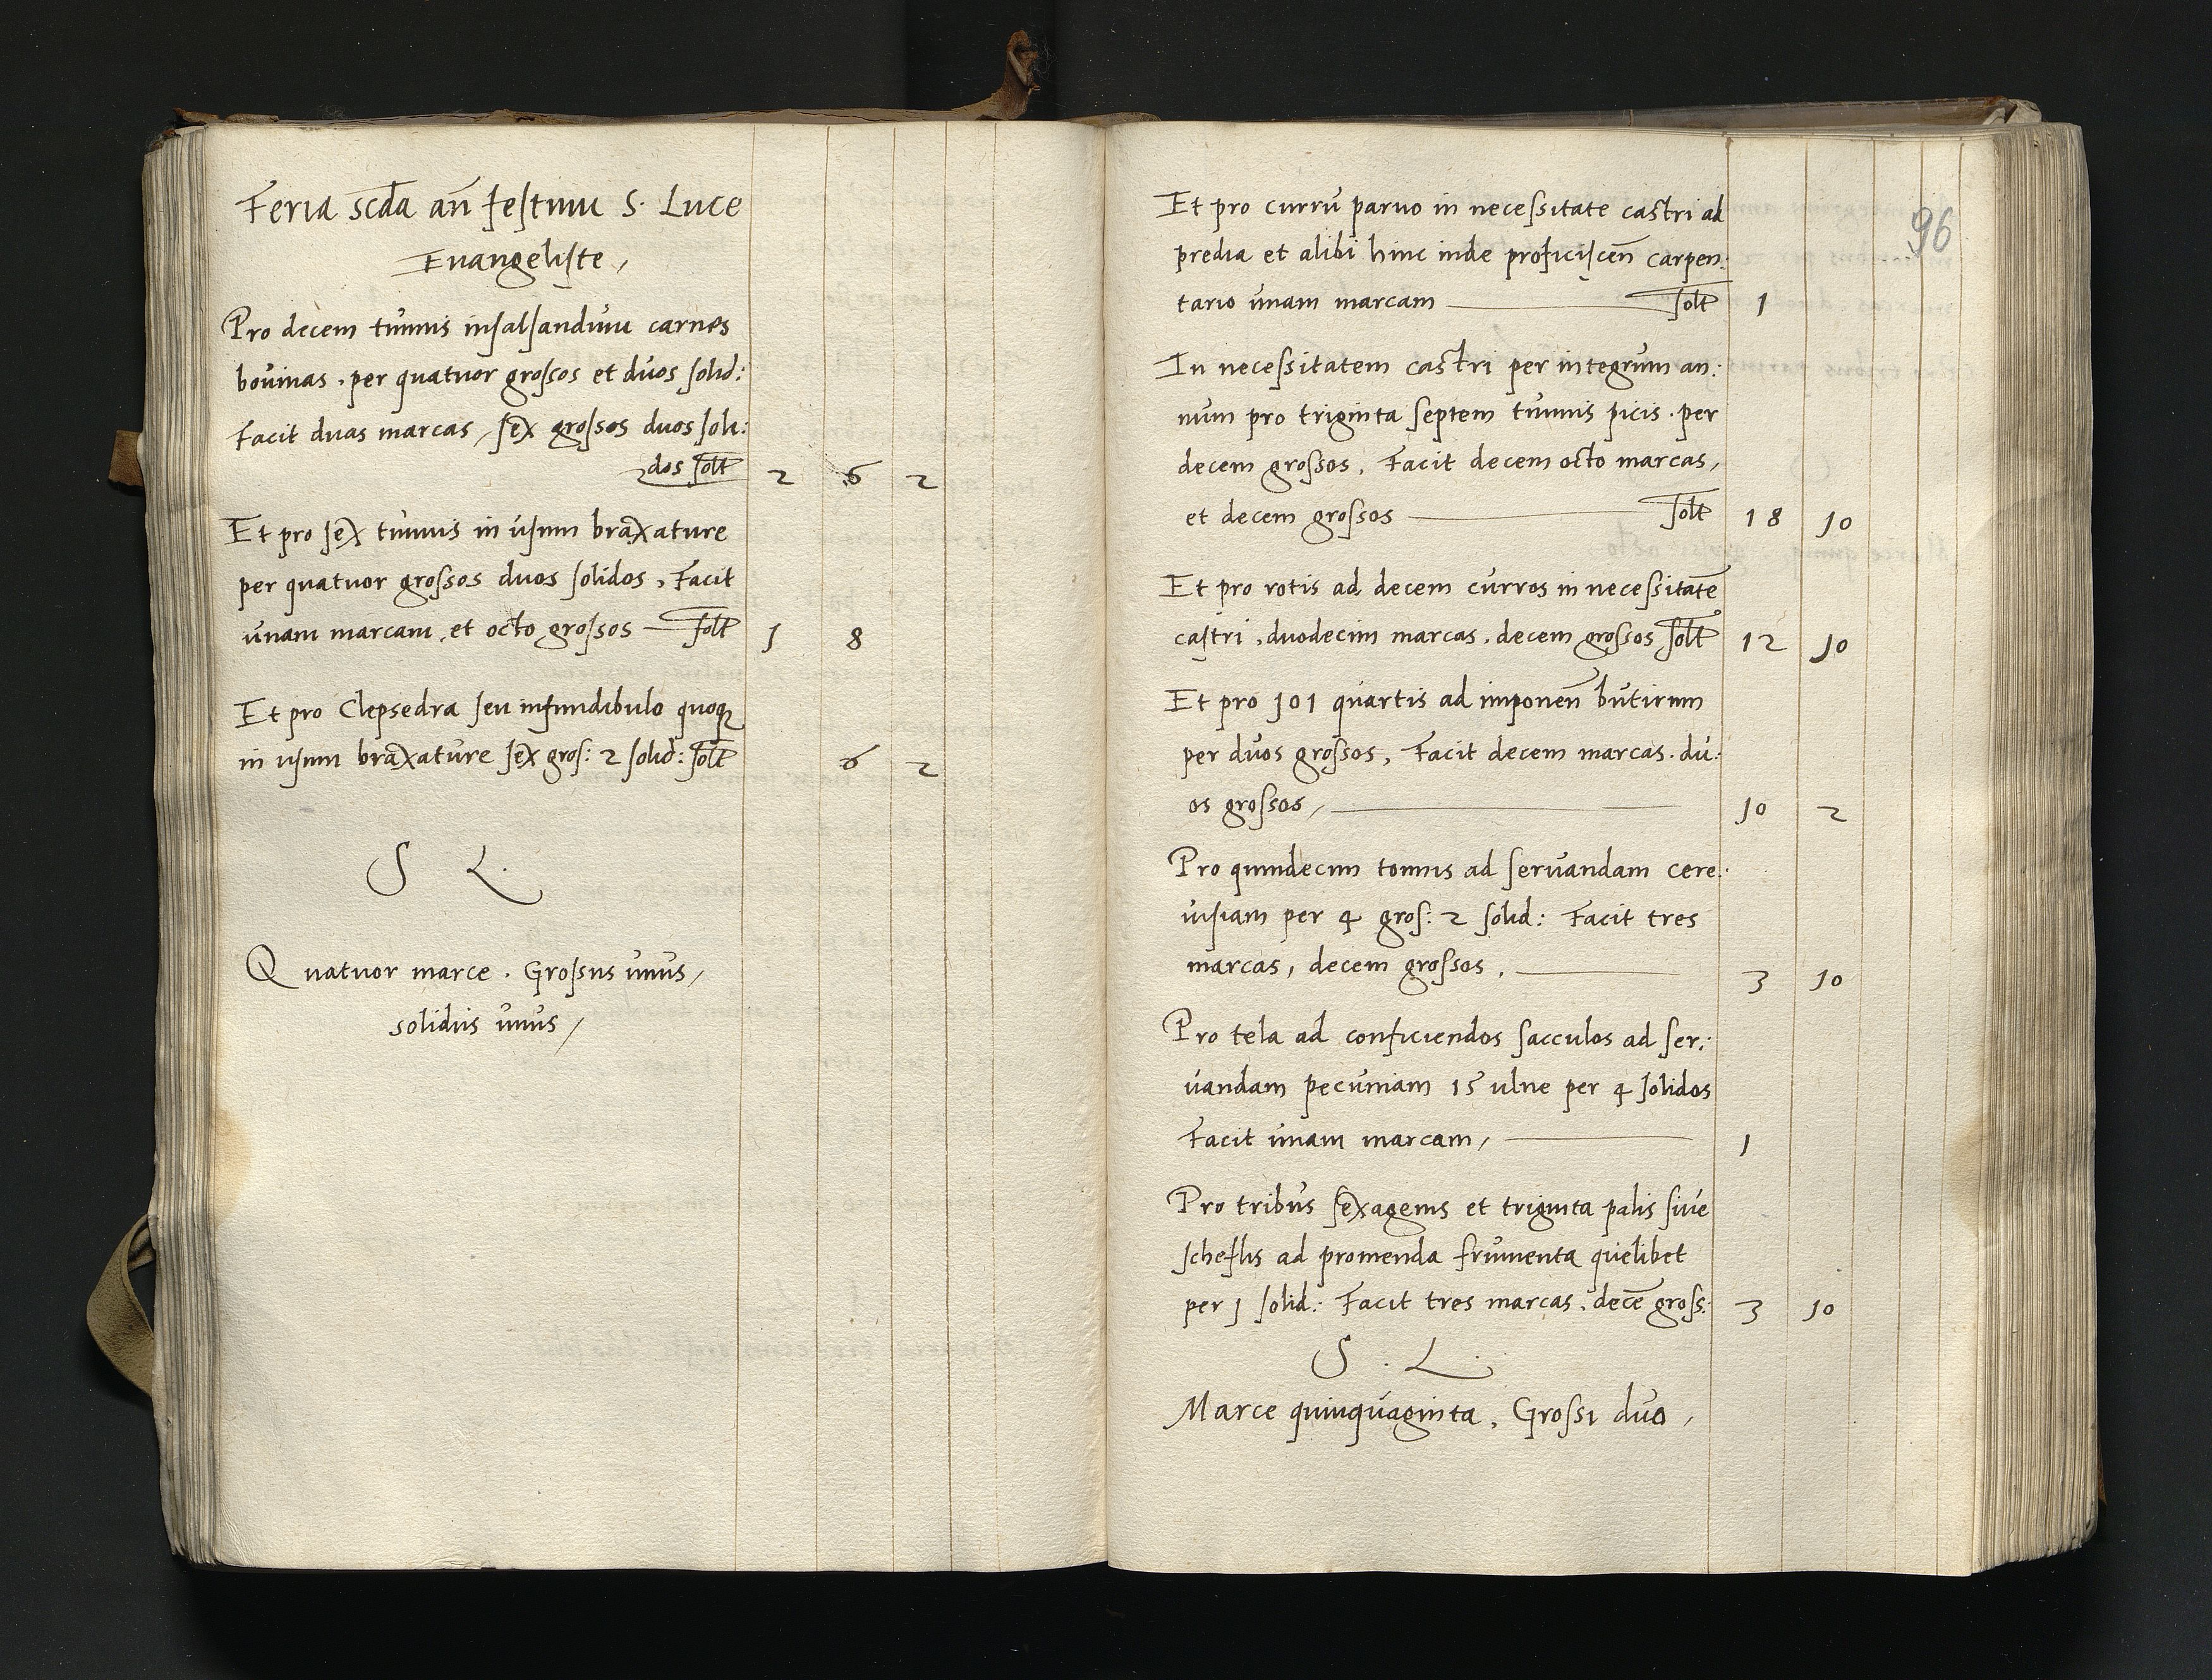 Feria scda an festum S. Luce
Euangeliste,
Pro decem tunnis insalsandum carnes
bouinas. per quatuor grossos et duos solid:
Facit duas marcas, sex grossos duos soli:
dos solt 2 6 2
Et pro sex tunnis in usum braxature
per quatuor grossos duos solidos, Facit
unam marcam, et octo grossos solt 1 8
Et pro Clepsedra seu infundibulo quoq
in usum braxature sex gros: 2 solid: solt 6 2
S L.
Quatuor marce. Grossus unus,
solidus unus,
96
Et pro curru paruo in necessitate castri ad
predia et alibi hinc inde proficiscen carpen:
tario unam marcam solt 1
In necessitatem castri per integrum an:
num pro triginta septem tunnis picis. per
decem grossos, Facit decem octo marcas,
et decem grossos solt 18 10
Et pro rotis ad decem curros in necessitate
castri, duodecim marcas, decem grossos solt 12 10
Et pro 101 quartis ad imponen butirum
per duos grossos, Facit decem marcas. du:
os grossos, 10 2
Pro quindecim tonnis ad seruandam cere:
uisiam per 4 gros: 2 solid: Facit tres
marcas, decem grossos, 3 10
Pro tela ad conficiendos sacculos ad ser:
uandam pecuniam 15 ulne per 4 solidos
Facit unam marcam, 1
Pro tribus sexagenis et triginta palis siue
scheflis ad promenda frumenta quelibet
per 1 solid: Facit tres marcas. dece gross: 3 10
S. L.
Marce quinquaginta, Grossi duo,